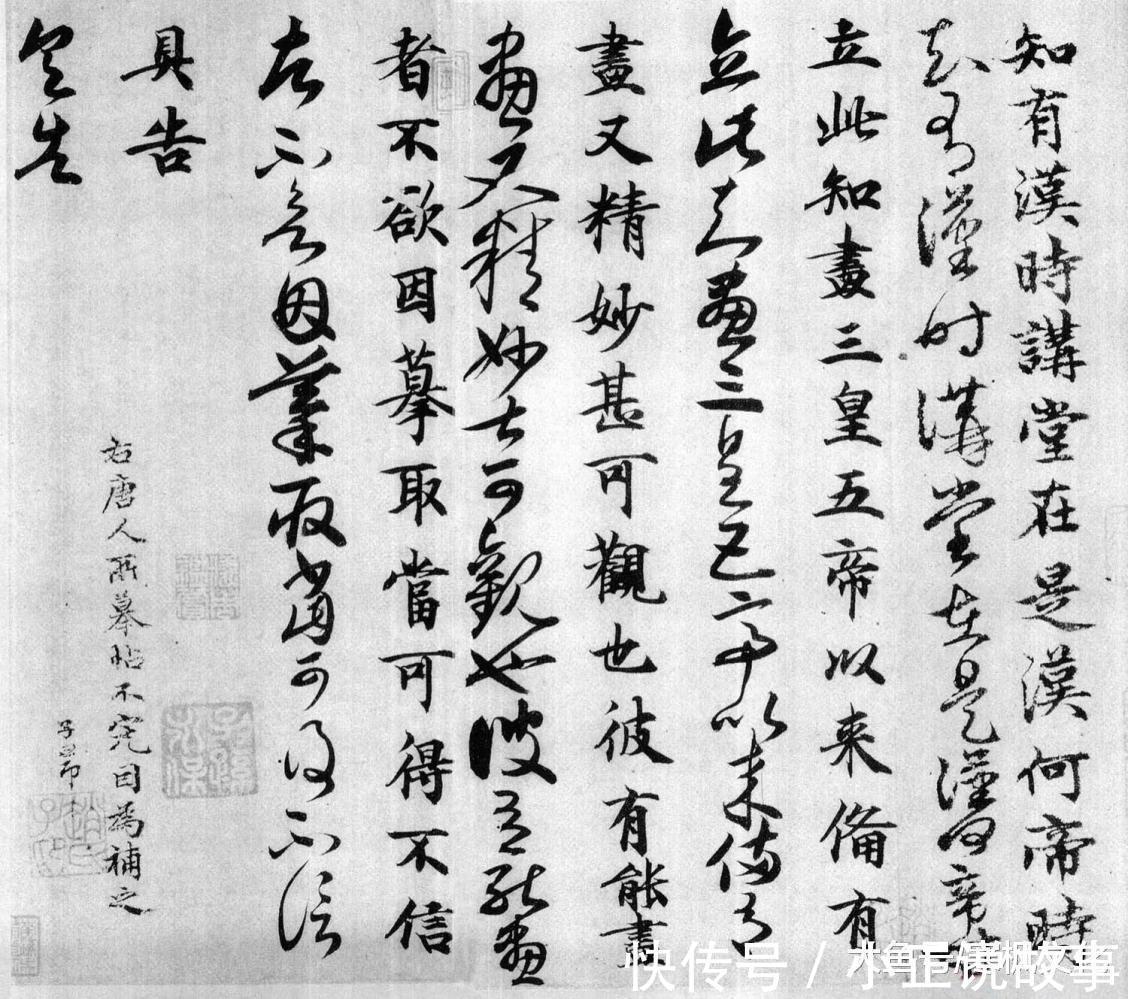 知有漢時講堂在是漢何帝時
知有漢時講堂在是漢何帝時
立此知畫三皇五帝以来俻有
立此知畫三皇五帝以来備有
畫又精妙甚可觀也彼有能畫
畫又精妙甚可觀也彼有能畫
者不欲因摹取當可得不信
者不欲因摹取當可得不信
具告
具告
右唐人所摹帖不完因為補之
子昂
快传号/
小正说故事